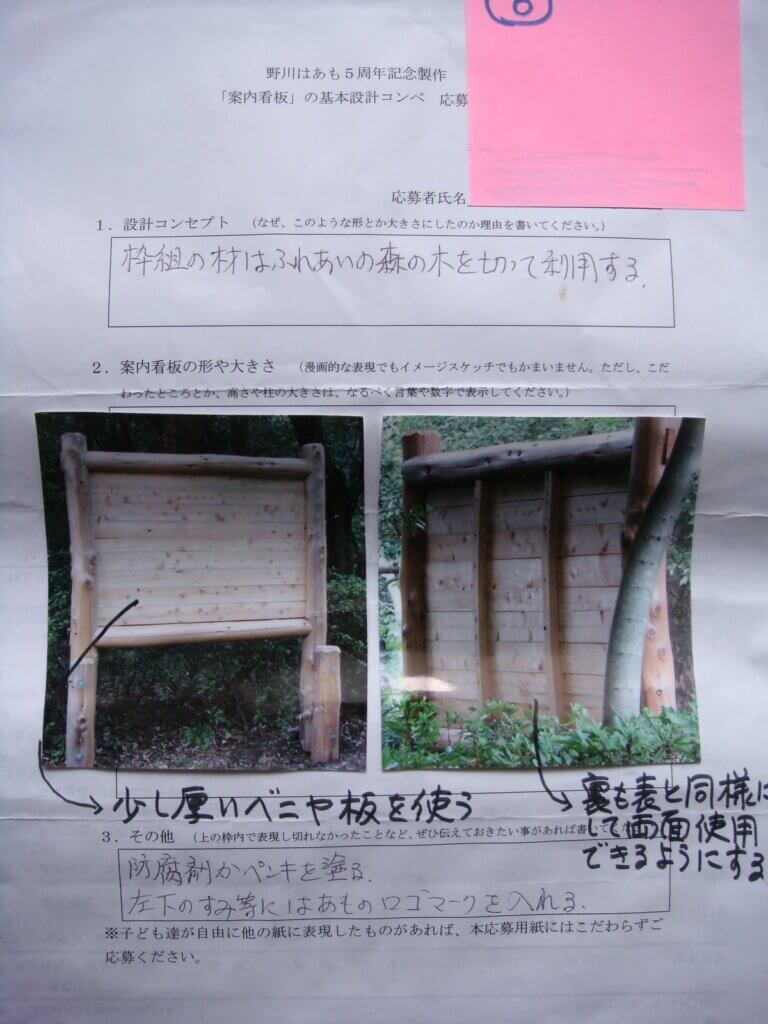 6
野川はあも５周年記念製作
「案内看板」の基本設計コンペ　応募
応募者氏名
１．設計コンセプト　（なぜ、このような形とか大きさにしたのか理由を書いてください。）
枠組の材はふれあいの森の木を切って利用する.
２．案内看板の形や大きさ　（漫画的な表現でもイメージスケッチでもかまいません。ただし、こだ
わったところとか、高さや柱の大きさは、なるべく言葉や数字で表示してください。）
少し厚いベニヤ板を使う
裏も表と同様に
して両面使用
できるようにする
３．その他　（上の枠内で表現し切れなかったことなど、ぜひ伝えておきたい事があれば書いて
防腐剤かペンキを塗る.
左下のすみ等にはあものロゴマークを入れる.
※子ども達が自由に他の紙に表現したものがあれば、本応募用紙にはこだわらずご
応募ください。